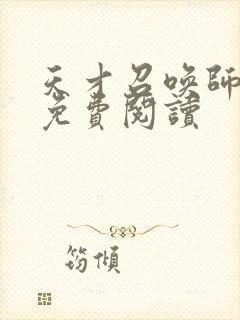 天才召喚師
免費閱讀
筠傾